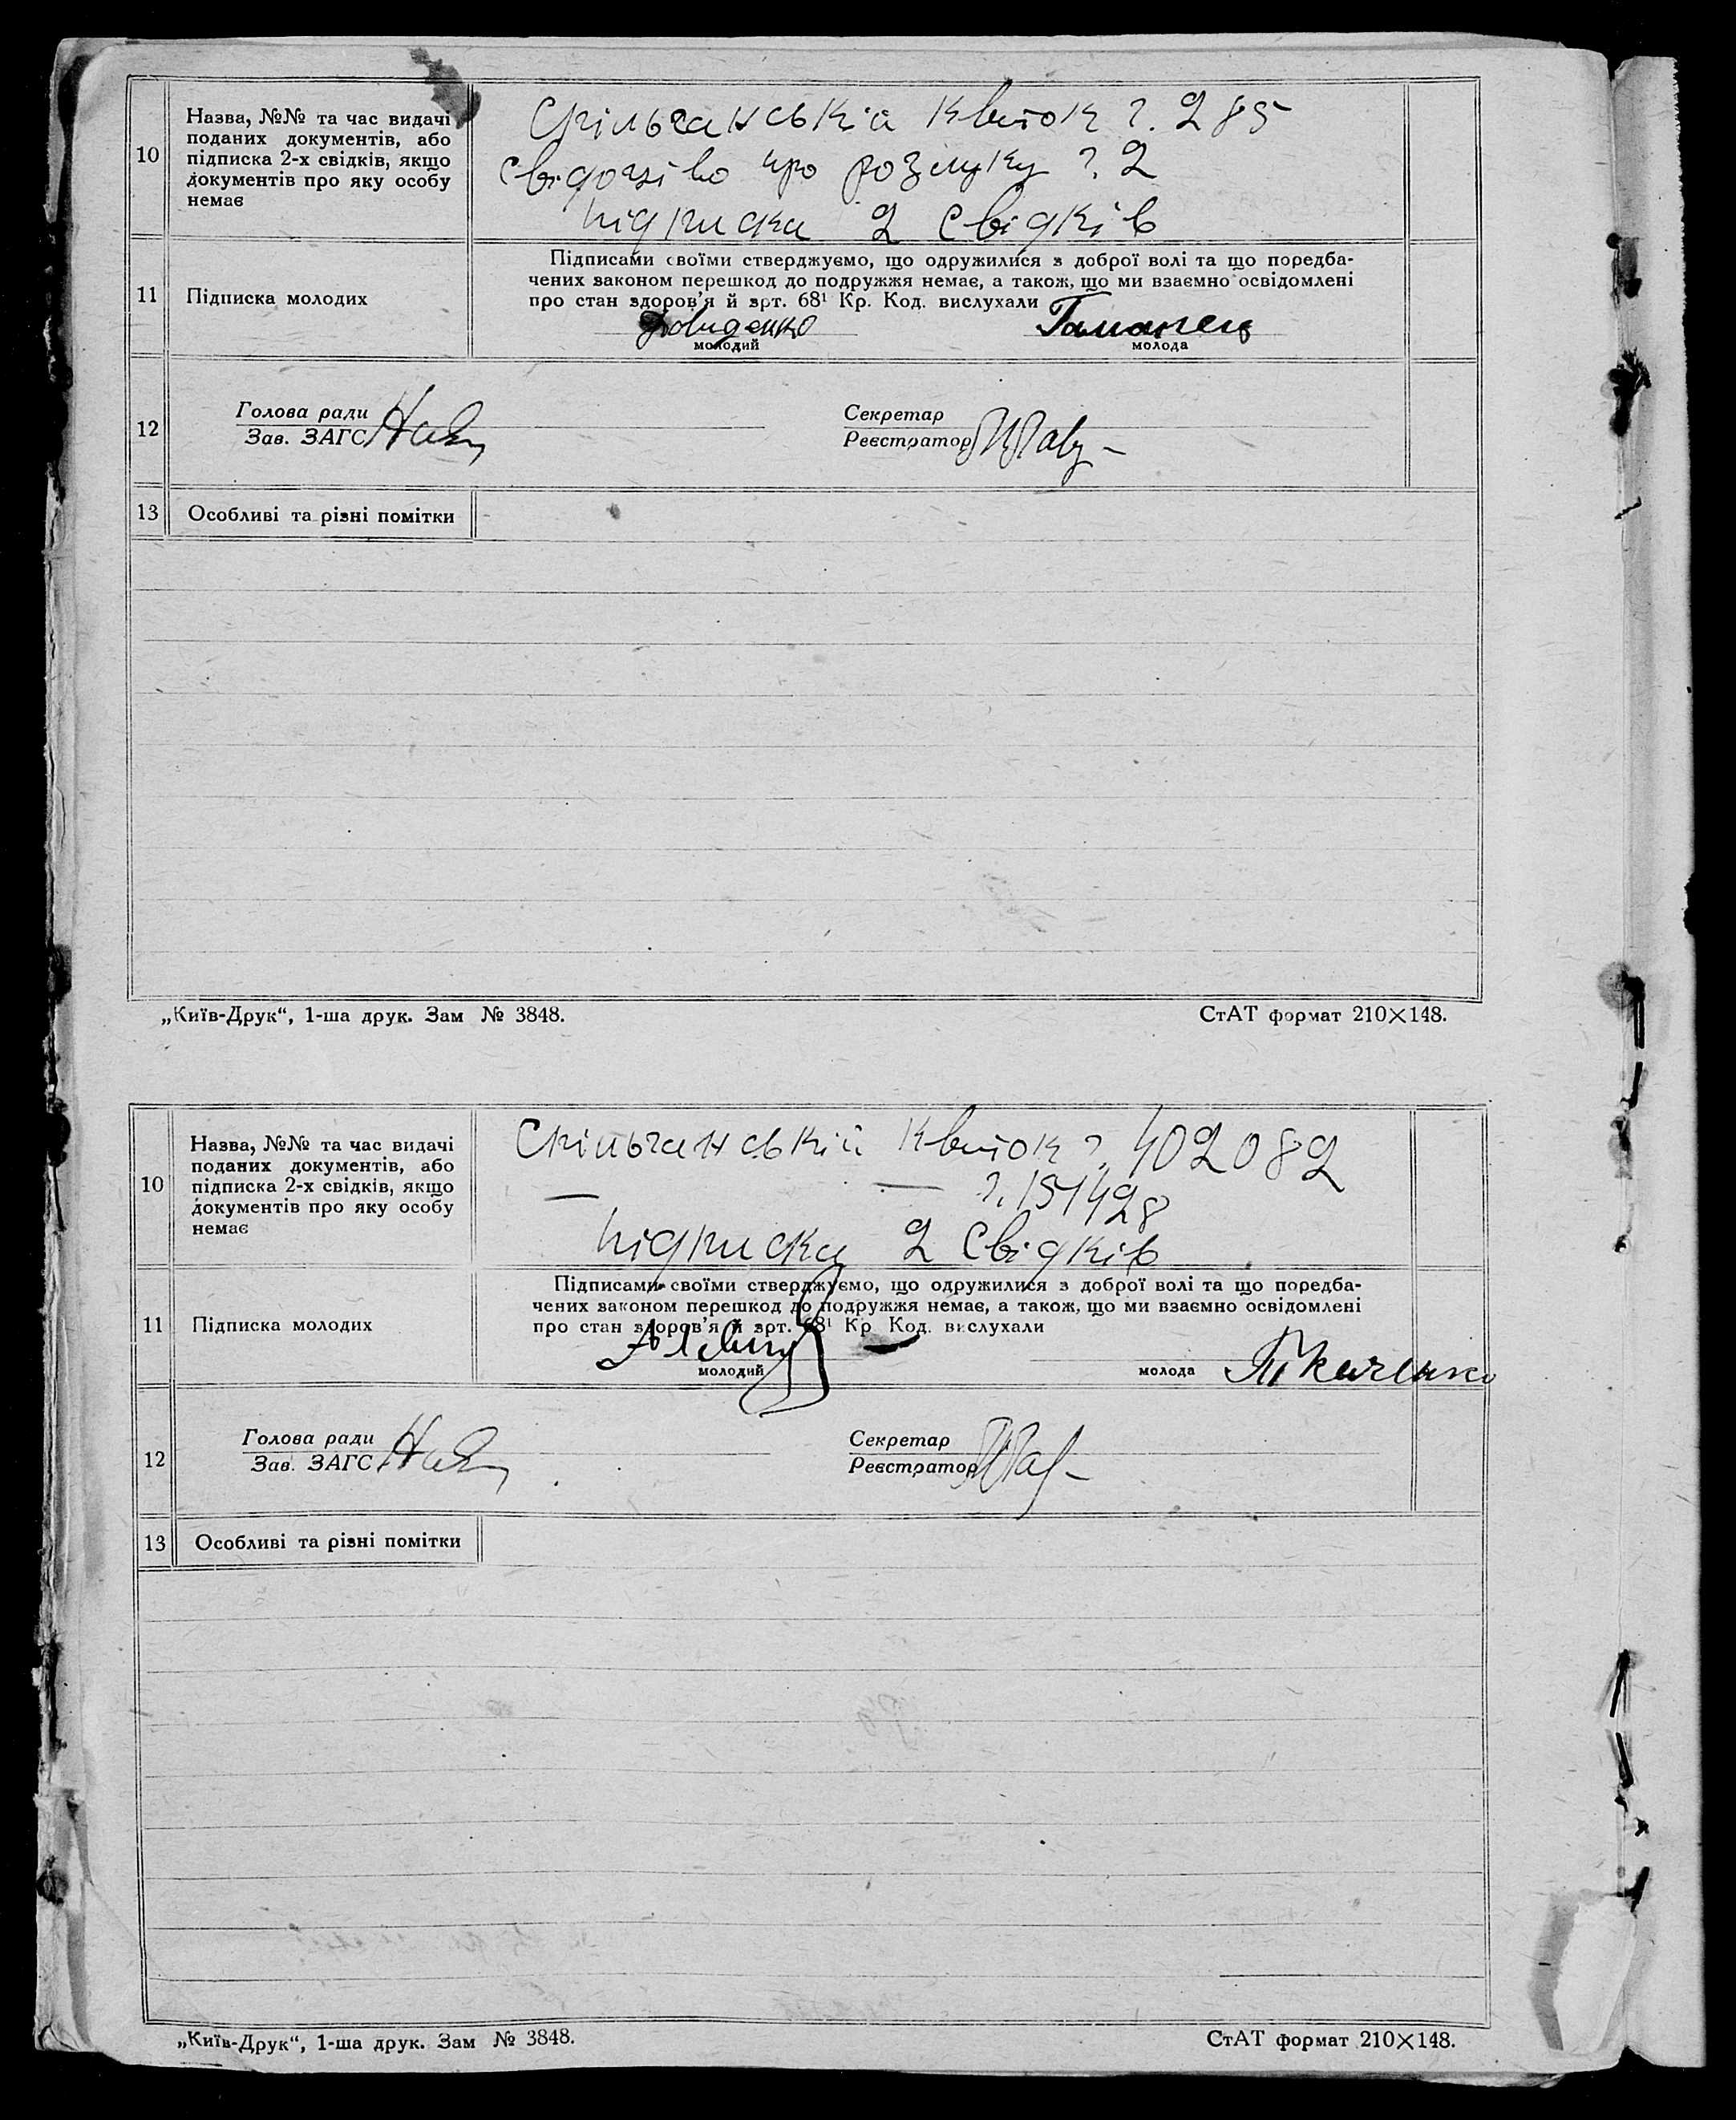 10
Назва, №№ та час видачі
поданих документів, або
підписка 2-х свідків, якщо
документів про яку особу
немає
Спільчанській квиток ч. 285
свідоцтво про розлуку ч. 2
підписка 2 свідків
11
Підписка молодих
Підписами своїми стверджуємо, що одружилися з доброї волі та що поредба-
чених законом перешкод до подружжя немає, а також, що ми взаємно освідомлені
про стан здоров'я й зрт. 68¹ Кр. Код. вислухали
Довиденко
молодий
Гаманец
молода
12
Голова ради
Зав. ЗАГС
Секретар
Реєстратор
13
Особливі та різні помітки
„Київ-Друк“, 1-ша друк. Зам № 3848.
СтАТ формат 210×148.
10
Назва, №№ та час видачі
поданих документів, або
підписка 2-х свідків, якщо
документів про яку особу
немає
Спільчанській квиток ч. 402082
— — ч. 151428
підписка 2 свідків
11
Підписка молодих
Підписами своїми стверджуємо, що одружилися з доброї волі та що поредба-
чених законом перешкод до подружжя немає, а також, що ми взаємно освідомлені
про стан здоров'я й зрт. 68¹ Кр Код. вислухали
молодий
молода
Ткаченко
12
Голова ради
Зав. ЗАГС
Секретар
Реєстратор
13
Особливі та різні помітки
„Київ-Друк“, 1-ша друк. Зам № 3848.
СтАТ формат 210×148.